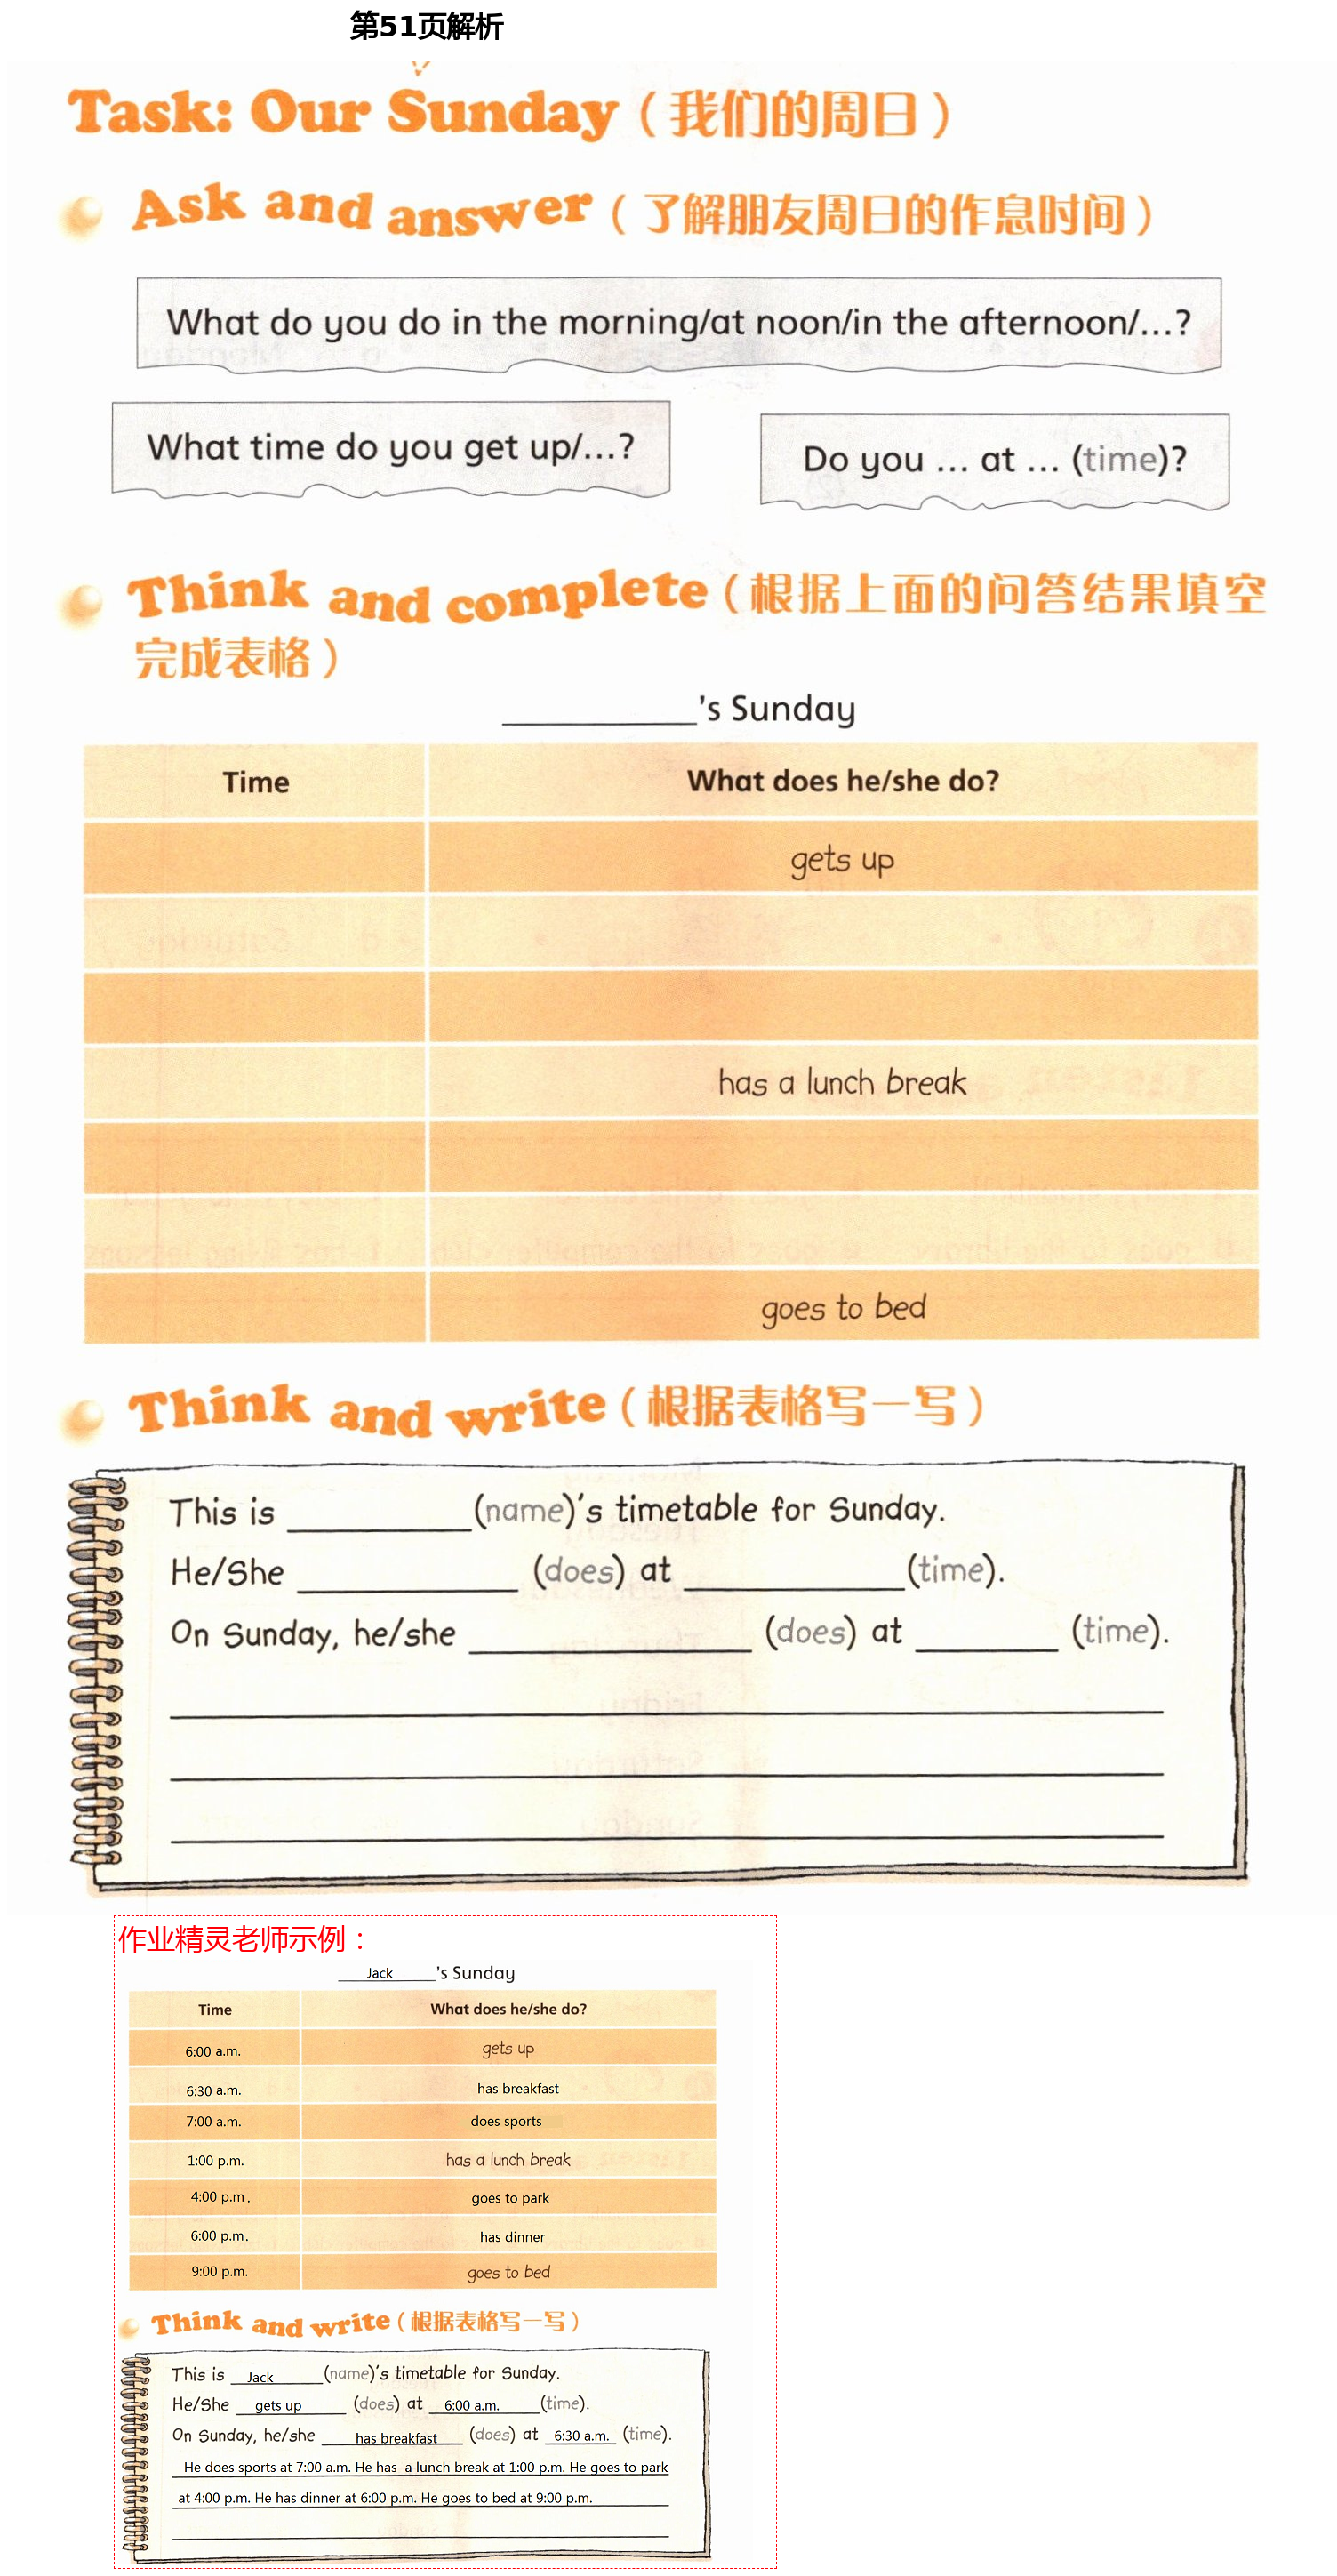 第51页解析
Task: Our Sunday（我们的周日）
Ask and answer（了解朋友周日的作息时间）
What do you do in the morning/at noon/in the afternoon/...?
What time do you get up/...?
Do you ... at ... (time)?
Think and complete（根据上面的问答结果填空
完成表格）
__________'s Sunday
Time What does he/she do?
gets up
has a lunch break
goes to bed
Think and write（根据表格写一写）
This is __________ (name)'s timetable for Sunday.
He/She __________ (does) at __________ (time).
On Sunday, he/she __________ (does) at __________ (time).
作业精灵老师示例：
Jack 's Sunday
Time What does he/she do?
6:00 a.m. gets up
6:30 a.m. has breakfast
7:00 a.m. does sports
1:00 p.m. has a lunch break
4:00 p.m. goes to park
6:00 p.m. has dinner
9:00 p.m. goes to bed
Think and write（根据表格写一写）
This is Jack (name)'s timetable for Sunday.
He/She gets up (does) at 6:00 a.m. (time).
On Sunday, he/she has breakfast (does) at 6:30 a.m. (time).
He does sports at 7:00 a.m. He has a lunch break at 1:00 p.m. He goes to park
at 4:00 p.m. He has dinner at 6:00 p.m. He goes to bed at 9:00 p.m.